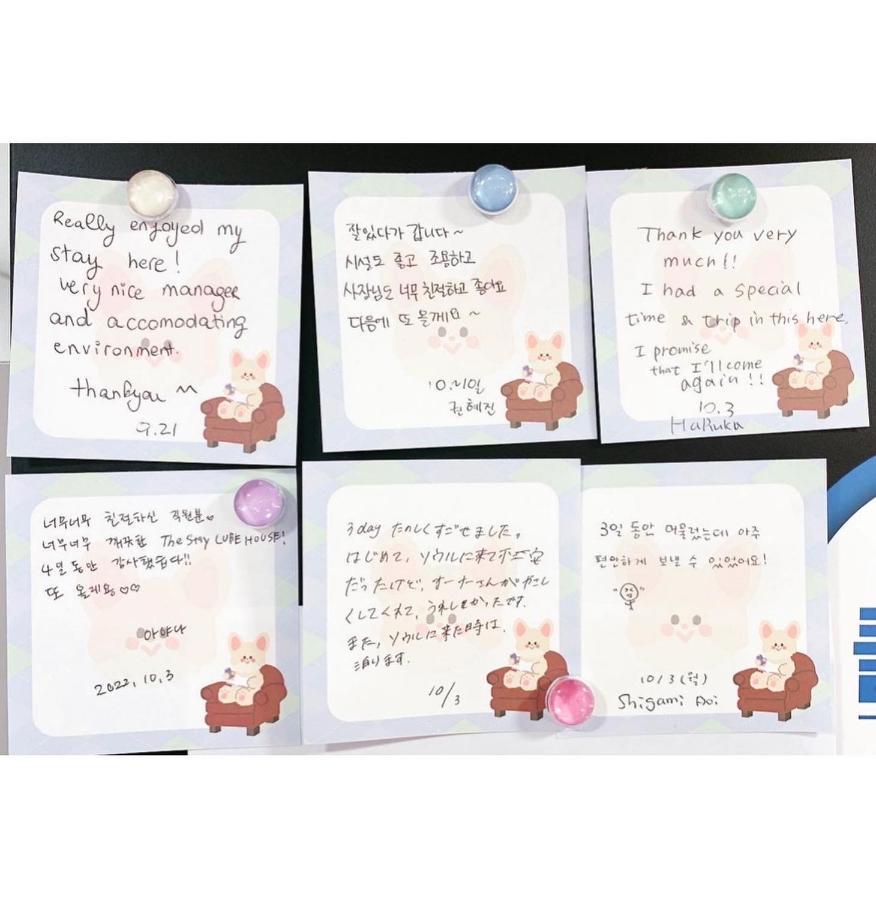 Really enjoyed my
stay here!
very nice manager
and accomodating
environment.
thankyou ~
9.21
잘있다가 갑니다~
시설도 좋고 조용하고
사장님도 너무 친절하고 좋아요
다음에 또 올게요 ~
10.21일
권혜진
Thank you very
much!!
I had a special
time & trip in this here.
I promise
that I'll come
again!!
10.3
Haruka
너무너무 친절하신 직원분♡
너무너무 깨끗한 The Stay CUBE HOUSE!
4일 동안 감사했습다!!
또 올게용♡♡
아야나
2022.10.3
3day たのしくすごせました。
はじめて、ソウルに来て不安
だったけど、オーナーさんがやさし
くしてくれて、うれしかったです.
また、ソウルに来た時は、
泊ります.
10/3
3일 동안 머물렀는데 아주
편안하게 보낼 수 있었어요!
10/3(월)
Shigami Aoi